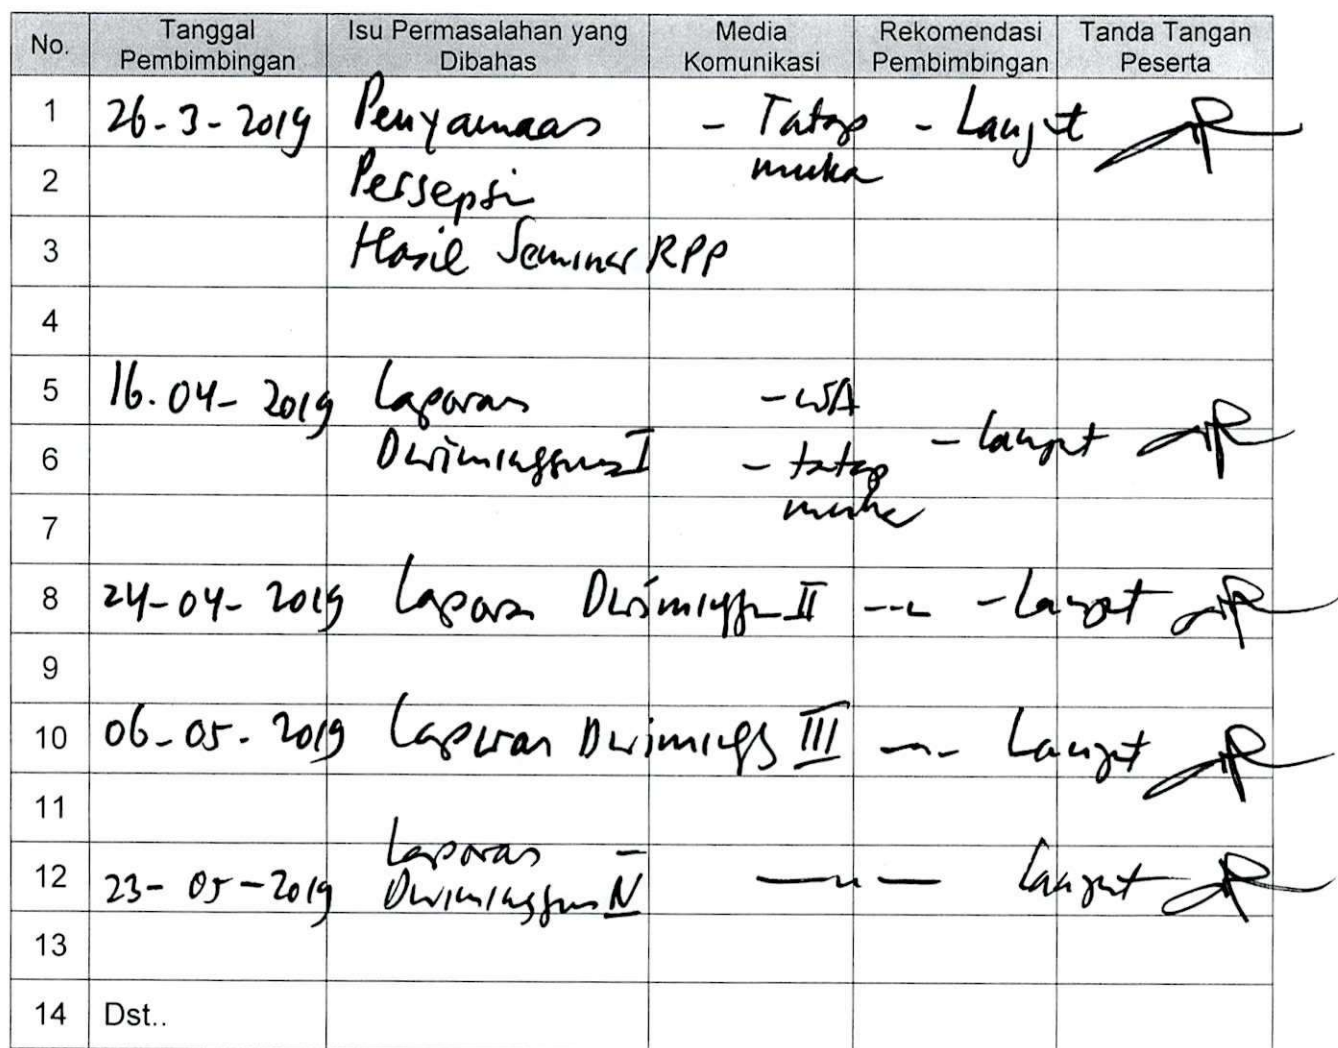 No. Tanggal Pembimbingan Isu Permasalahan yang Dibahas Media Komunikasi Rekomendasi Pembimbingan Tanda Tangan Peserta
1 26-3-2019 Penyamaan - Tatap - Lanjut
2 Persepsi muka
3 Hasil Seminar RPP
4
5 16.04-2019 Laporan - WA
6 Dwimingguan I - tatap - lanjut
7 muka
8 24-04-2019 Laporan Dwiminggu II -"- - Lanjut
9
10 06-05-2019 Laporan Dwiminggu III -"- Lanjut
11
Laporan -
12 23-05-2019 Dwimingguan IV —"— Lanjut
13
14 Dst..